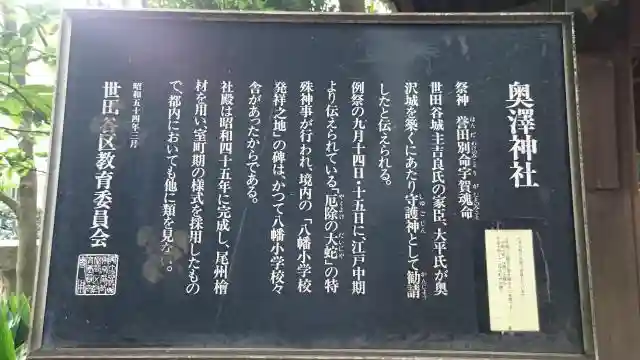 奥澤神社
祭神 誉田別命宇賀魂命
世田谷城主吉良氏の家臣、大平氏が奥
沢城を築くにあたり守護神として勧請
したと伝えられる。
例祭の九月十四日・十五日に、江戸中期
より伝えられている「厄除の大蛇」の特
殊神事が行われ、境内の「八幡小学校
発祥之地」の碑は、かつて八幡小学校々
舎があったからである。
社殿は昭和四十五年に完成し、尾州檜
材を用い、室町期の様式を採用したもの
で、都内においても他に類を見ない。
昭和五十四年三月
世田谷区教育委員会